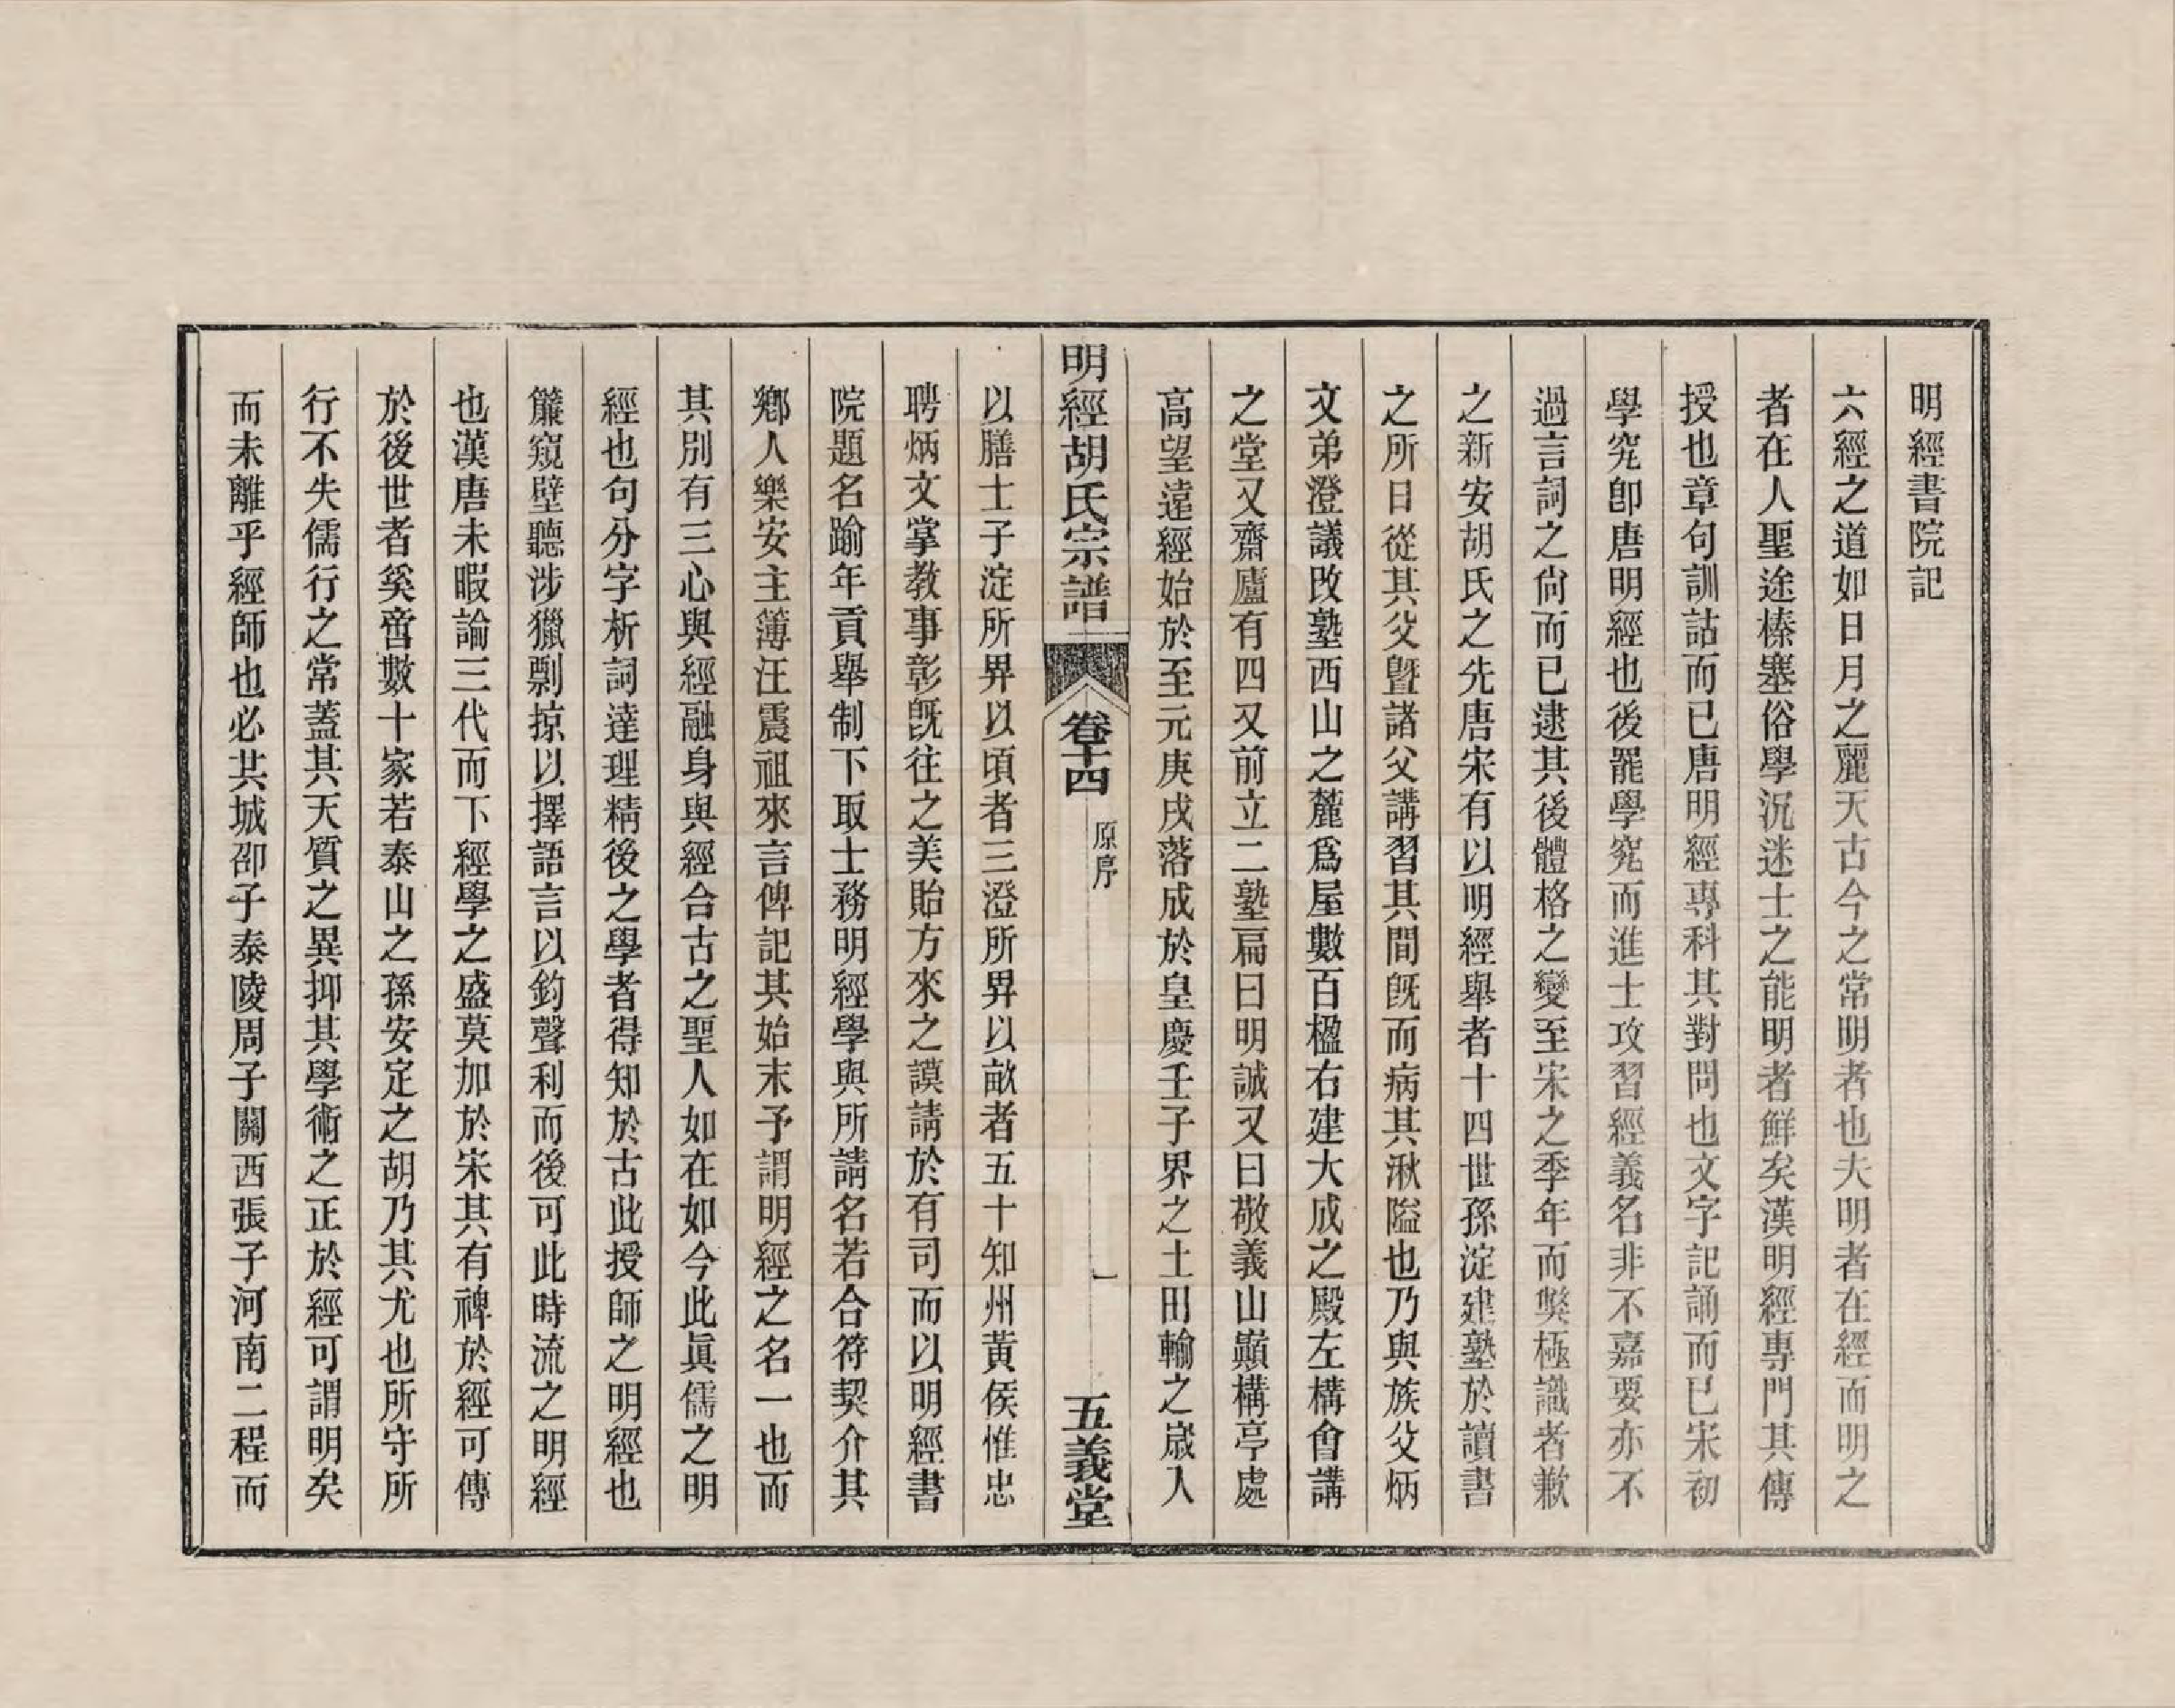 明經書院記
六經之道如日月之麗天古今之常明者也夫明者在經而明之
者在人聖途榛塞俗學沉迷士之能明者鮮矣漢明經專門其傳
授也章句訓詁而已唐明經專科其對問也文字記誦而已宋初
學究卽唐明經也後罷學究而進士攻習經義名非不嘉要亦不
過言詞之尙而已逮其後體格之變至宋之季年而獘極識者歉
之新安胡氏之先唐宋有以明經舉者十四世孫淀建塾於讀書
之所日從其父曁諸父講習其間旣而病其湫隘也乃與族父炳
文弟澄議改塾西山之麓爲屋數百楹右建大成之殿左構會講
之堂又齋廬有四又前立二塾扁曰明誠又曰敬義山巔構亭處
高望遠經始於至元庚戌落成於皇慶壬子畀之土田輸之嵗入
明經胡氏宗譜 卷十四 原序 一 五義堂
以膳士子淀所畀以頃者三澄所畀以畝者五十知州黃侯惟忠
聘炳文掌教事彰旣往之美貽方來之謨請於有司而以明經書
院題名踰年貢舉制下取士務明經學與所請名若合符契介其
鄕人樂安主簿汪震祖來言俾記其始末予謂明經之名一也而
其別有三心與經融身與經合古之聖人如在如今此眞儒之明
經也句分字析詞達理精後之學者得知於古此授師之明經也
簾窺壁聽涉獵剽掠以擇語言以鈞聲利而後可此時流之明經
也漢唐未暇論三代而下經學之盛莫加於宋其有裨於經可傳
於後世者奚啻數十家若泰山之孫安定之胡乃其尤也所守所
行不失儒行之常蓋其天質之異抑其學術之正於經可謂明矣
而未離乎經師也必共城邵子泰陵周子關西張子河南二程而